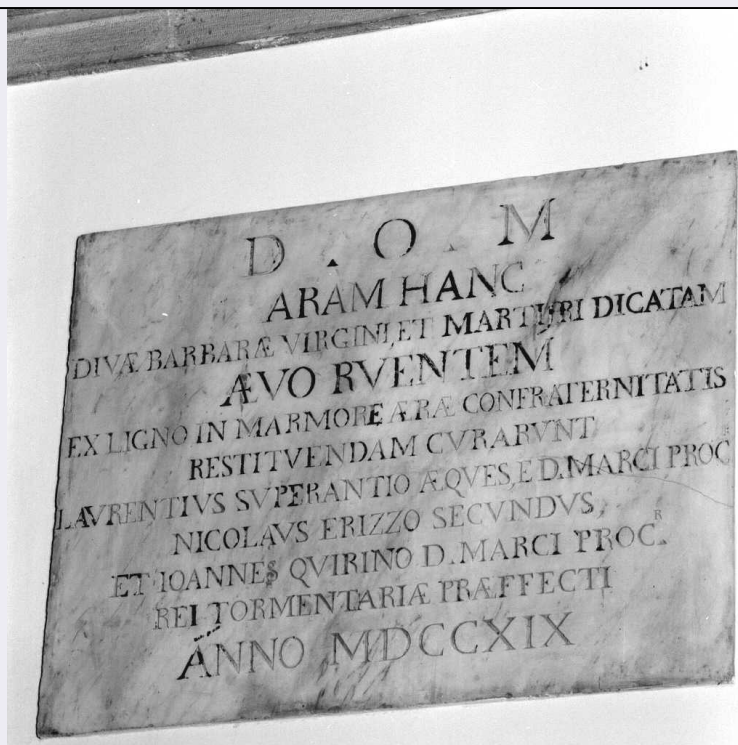 D . O . M
ARAM HANC
DIVÆ BARBARÆ VIRGINI, ET MARTYRI DICATAM
ÆVO RVENTEM
EX LIGNO IN MARMORE ÆRÆ CONFRATERNITATIS
RESTITVENDAM CVRARVNT
LAVRENTIVS SVPERANTIO ÆQVES, E D. MARCI PROC.R
NICOLAVS ERIZZO SECVNDVS,
ET IOANNES QVIRINO D. MARCI PROC.R
REI TORMENTARIÆ PRÆFFECTI
ANNO MDCCXIX